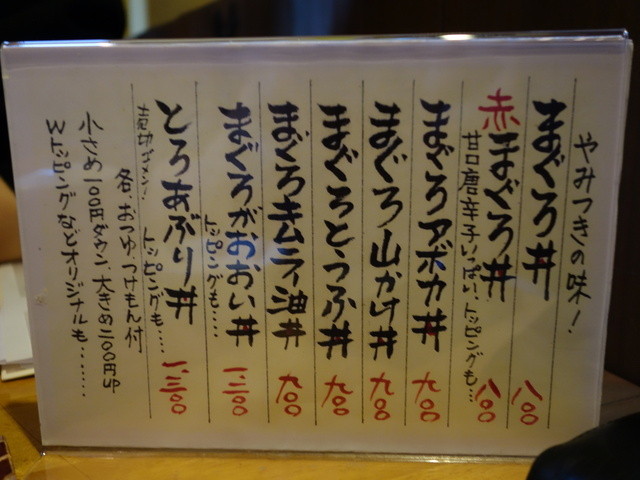 やみつきの味!
まぐろ丼 八〇〇
赤まぐろ丼 八〇〇
甘口唐辛子いっぱい、トッピングも…
まぐろアボカ丼 九〇〇
まぐろ山かけ丼 九〇〇
まぐろとうふ丼 九〇〇
まぐろキムラー油丼 九〇〇
まぐろがおおい丼 一、二〇〇
トッピングも....
とろあぶり丼 一、三〇〇
売切ゴメン! トッピングも....
各、おつゆ、つけもん付
小さめ一〇〇円ダウン、大きめ二〇〇円UP
WトッピングなどオリジナルもA......